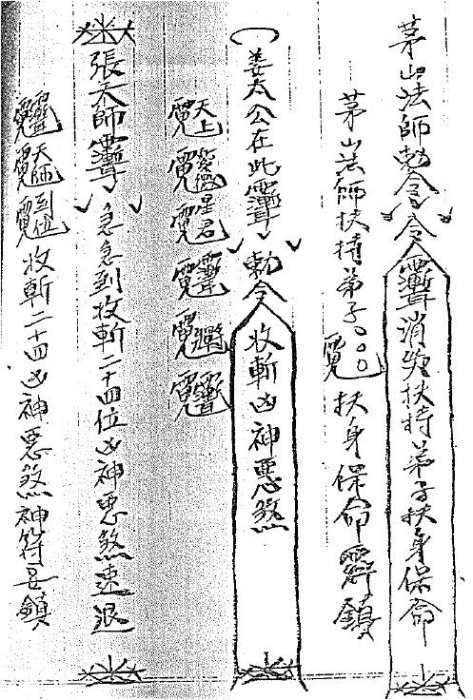 茅山法師勅令 令 消災扶持弟子扶身保命
茅山法師扶持弟子○○○ 扶身保命 鎮
姜太公在此 勅令 收斬凶神惡煞
天上 紫微 星君
張天師 急急到收斬二十四位凶神惡煞速退
天師 到位 收斬二十四凶神惡煞神符 鎮